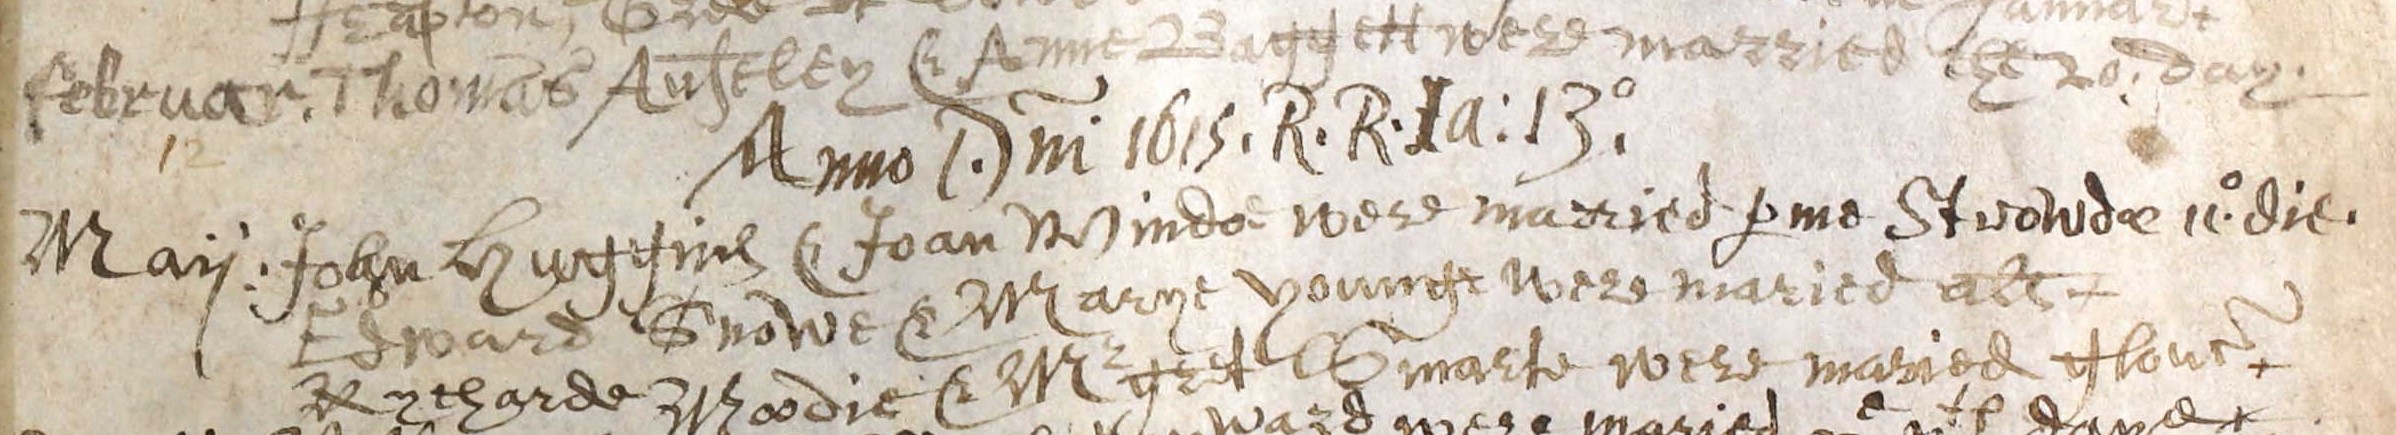 Januar
Februar. Thomas Ansteley & Anne Baggett were married the 20. day.
12
Anno Dni 1615. R. R. Ia: 13°.
Maij. John Huggins & Joan Windoe were married p me Strowde 11° die.
Edward Snowe & Marye Younge were maried
Rytcharde Moodie & Mrgret Smarte were maried
ward were maried